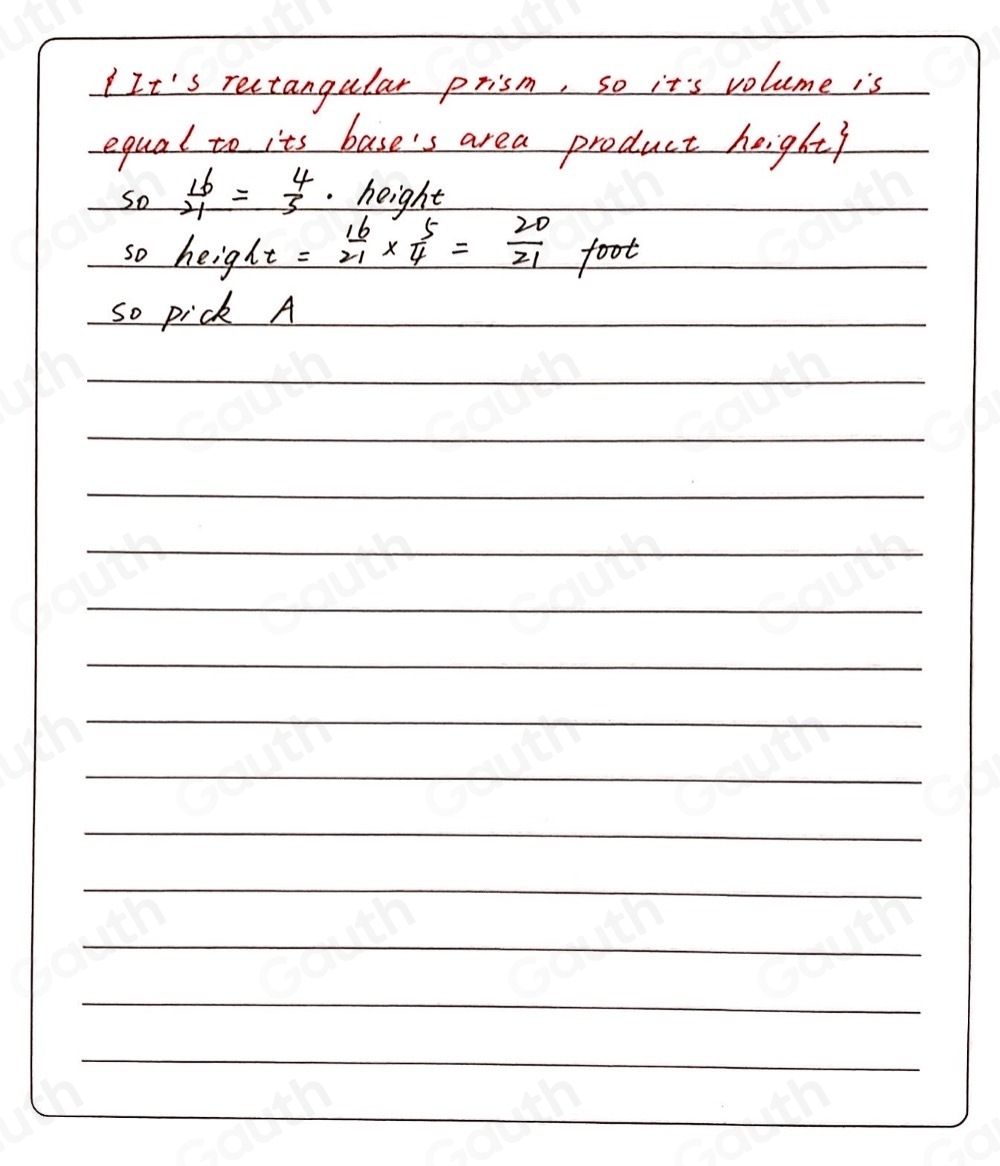 {It's rectangular prism, so it's volume is
equal to its base's area product height}
so 16/21 = 4/5 · height
so height = 16/21 × 5/4 = 20/21 foot
so pick A
Gauth